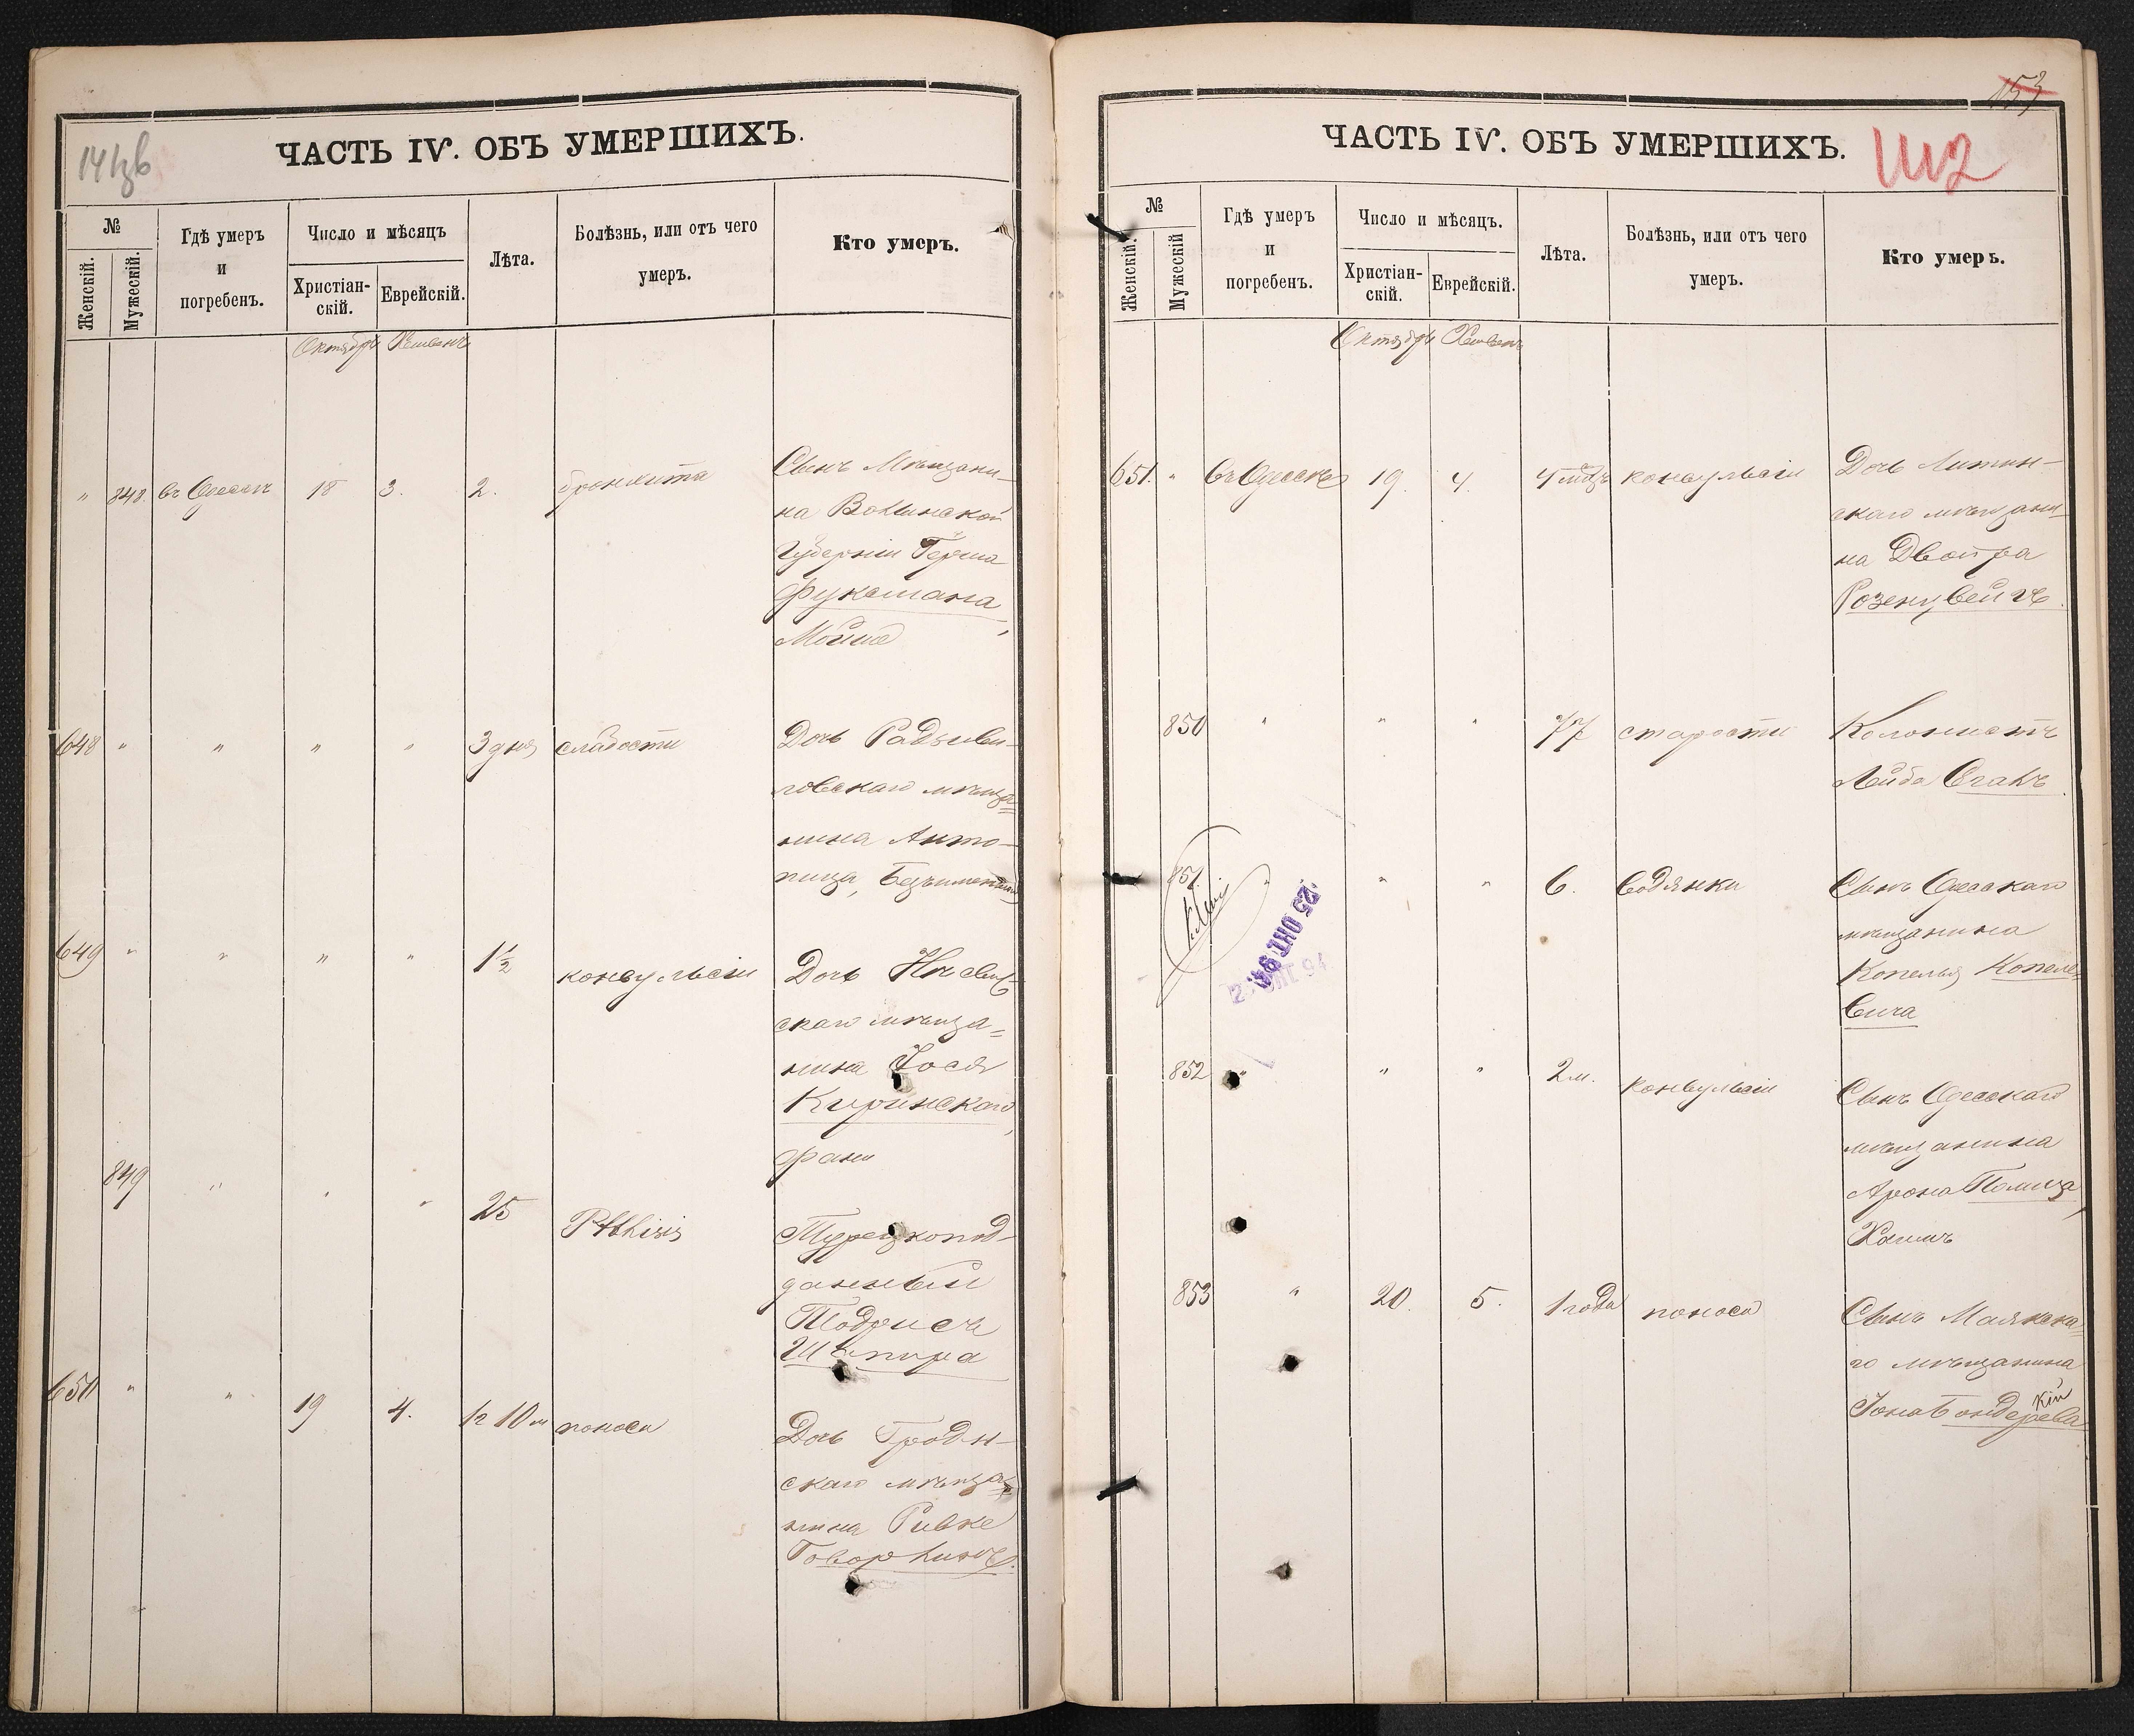 ЧАСТЬ IV. ОБЪ УМЕРШИХЪ.
№
Женскій.
Мужескій.
Гдѣ умеръ
и
погребенъ.
Число и мѣсяцъ
Христіан-
скій.
Еврейскій.
Лѣта.
Болѣзнь, или отъ чего
умеръ.
Кто умеръ.
Октябрь Хешвенъ
" 848. въ Одессѣ 18 3. 2. бронхита Сынъ Мѣщани-
на Волынской
Губерніи Герша
Фуксмана,
Мойше
648 " " " " 3 дня слабости Дочь Радзиви-
ловскаго мѣща=
нина Анто-
649 " " " " 1½ конвульсіи Дочь
скаго мѣща=
нина Іося
Киринскаго,
Фани
849 " " " 25 Phthisis Турецкопод-
данный
Тодрисъ
Шапира
650 " " 19 4. 1г 10м поноса Дочь Гродн-
скаго мѣща=
нина Ривке
ЧАСТЬ IV. ОБЪ УМЕРШИХЪ.
153
№
Женскій.
Мужескій
Гдѣ умеръ
и
погребенъ.
Число и мѣсяцъ.
Христіан-
скій.
Еврейскій.
Лѣта.
Болѣзнь, или отъ чего
умеръ.
Кто умеръ.
Октябрь Хешвенъ
651. " въ Одессѣ 19. 4. 4 мѣц конвульсіи Дочь Литин-
скаго мѣщани-
на Двойра
Розенцвейгъ.
850 " " " 77 старости Колонистъ
Лейба
851. " " " 6. водянки Сынъ Одесскаго
мѣщанина
Копеля Копеле=
вича
25 ОКТ 94
852 " " " 2 м. конвульсіи Сынъ Одесскаго
мѣщанина
Арона
Хаимъ
853 " 20. 5. 1 года поноса Сынъ Маякска=
го мѣщанина
Іона